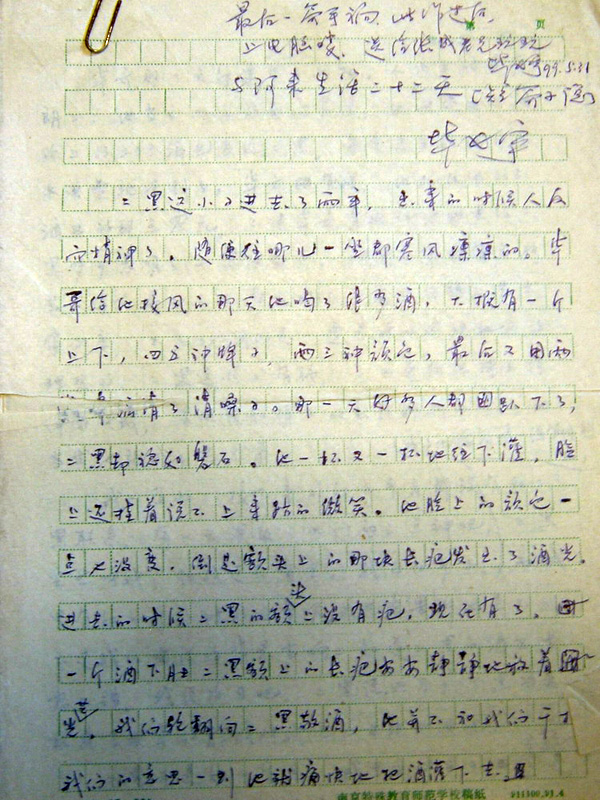 最后一篇手稿，此作过后，
上电脑喽，送给张成老兄玩玩
毕飞宇 99.5.31
页
与阿来生活二十二天
毕飞宇
二黑这小子进去了两年，出来的时候人反
而精神了。随便往哪儿一坐都寒风凛凛的。毕
哥给他接风的那天他喝了很多酒，大概有一个
上下，四五种牌子，两三种颜色，最后又用两
啤酒清了清嗓子。那一天好多人都趴下了，
二黑却稳如磐石。他一杯又一杯地往下灌，脸
上还挂着说不上来路的微笑。他脸上的颜色一
点也没变，倒是额头上的那块长疤发出了酒光。
进去的时候二黑的额头上没有疤，现在有了。
一个酒下肚二黑额上的长疤安安静静地放着
光芒。我们轮翻向二黑敬酒，他并不和我们干才
我们的意思一到他就痛快地把酒灌下去。
南京特殊教育师范学校稿纸 911300.91.4